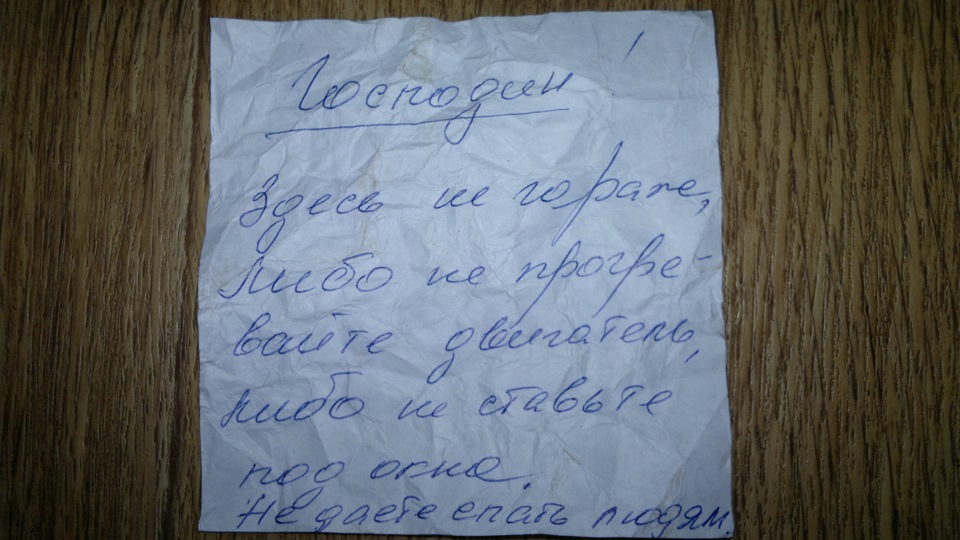 Господин!
Здесь не гораже,
либо не прогре-
вайте двигатель,
либо не ставьте
под окна.
Не даете спать людям.